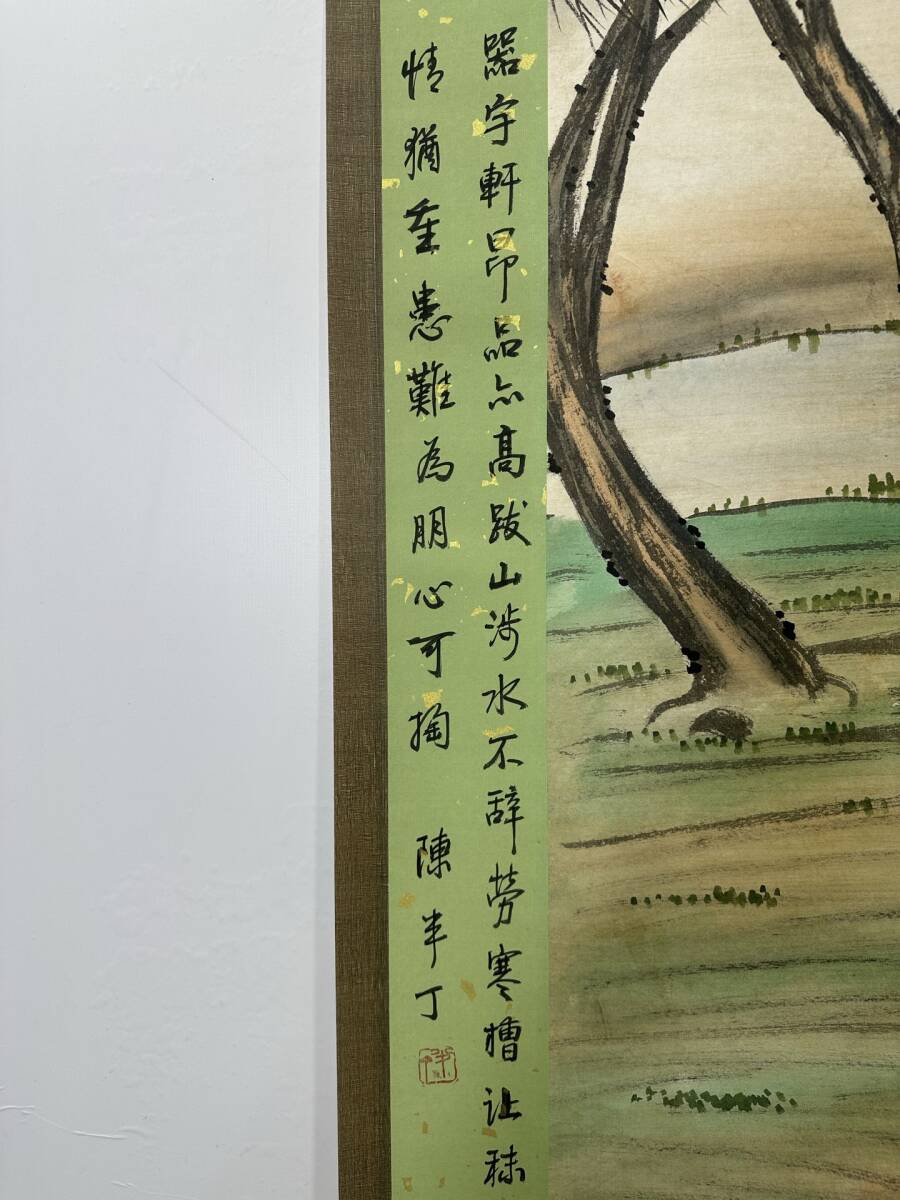 器宇軒昂品亦高跋山涉水不辞劳寒槽让秣
情猶重患難為朋心可掏 陳半丁